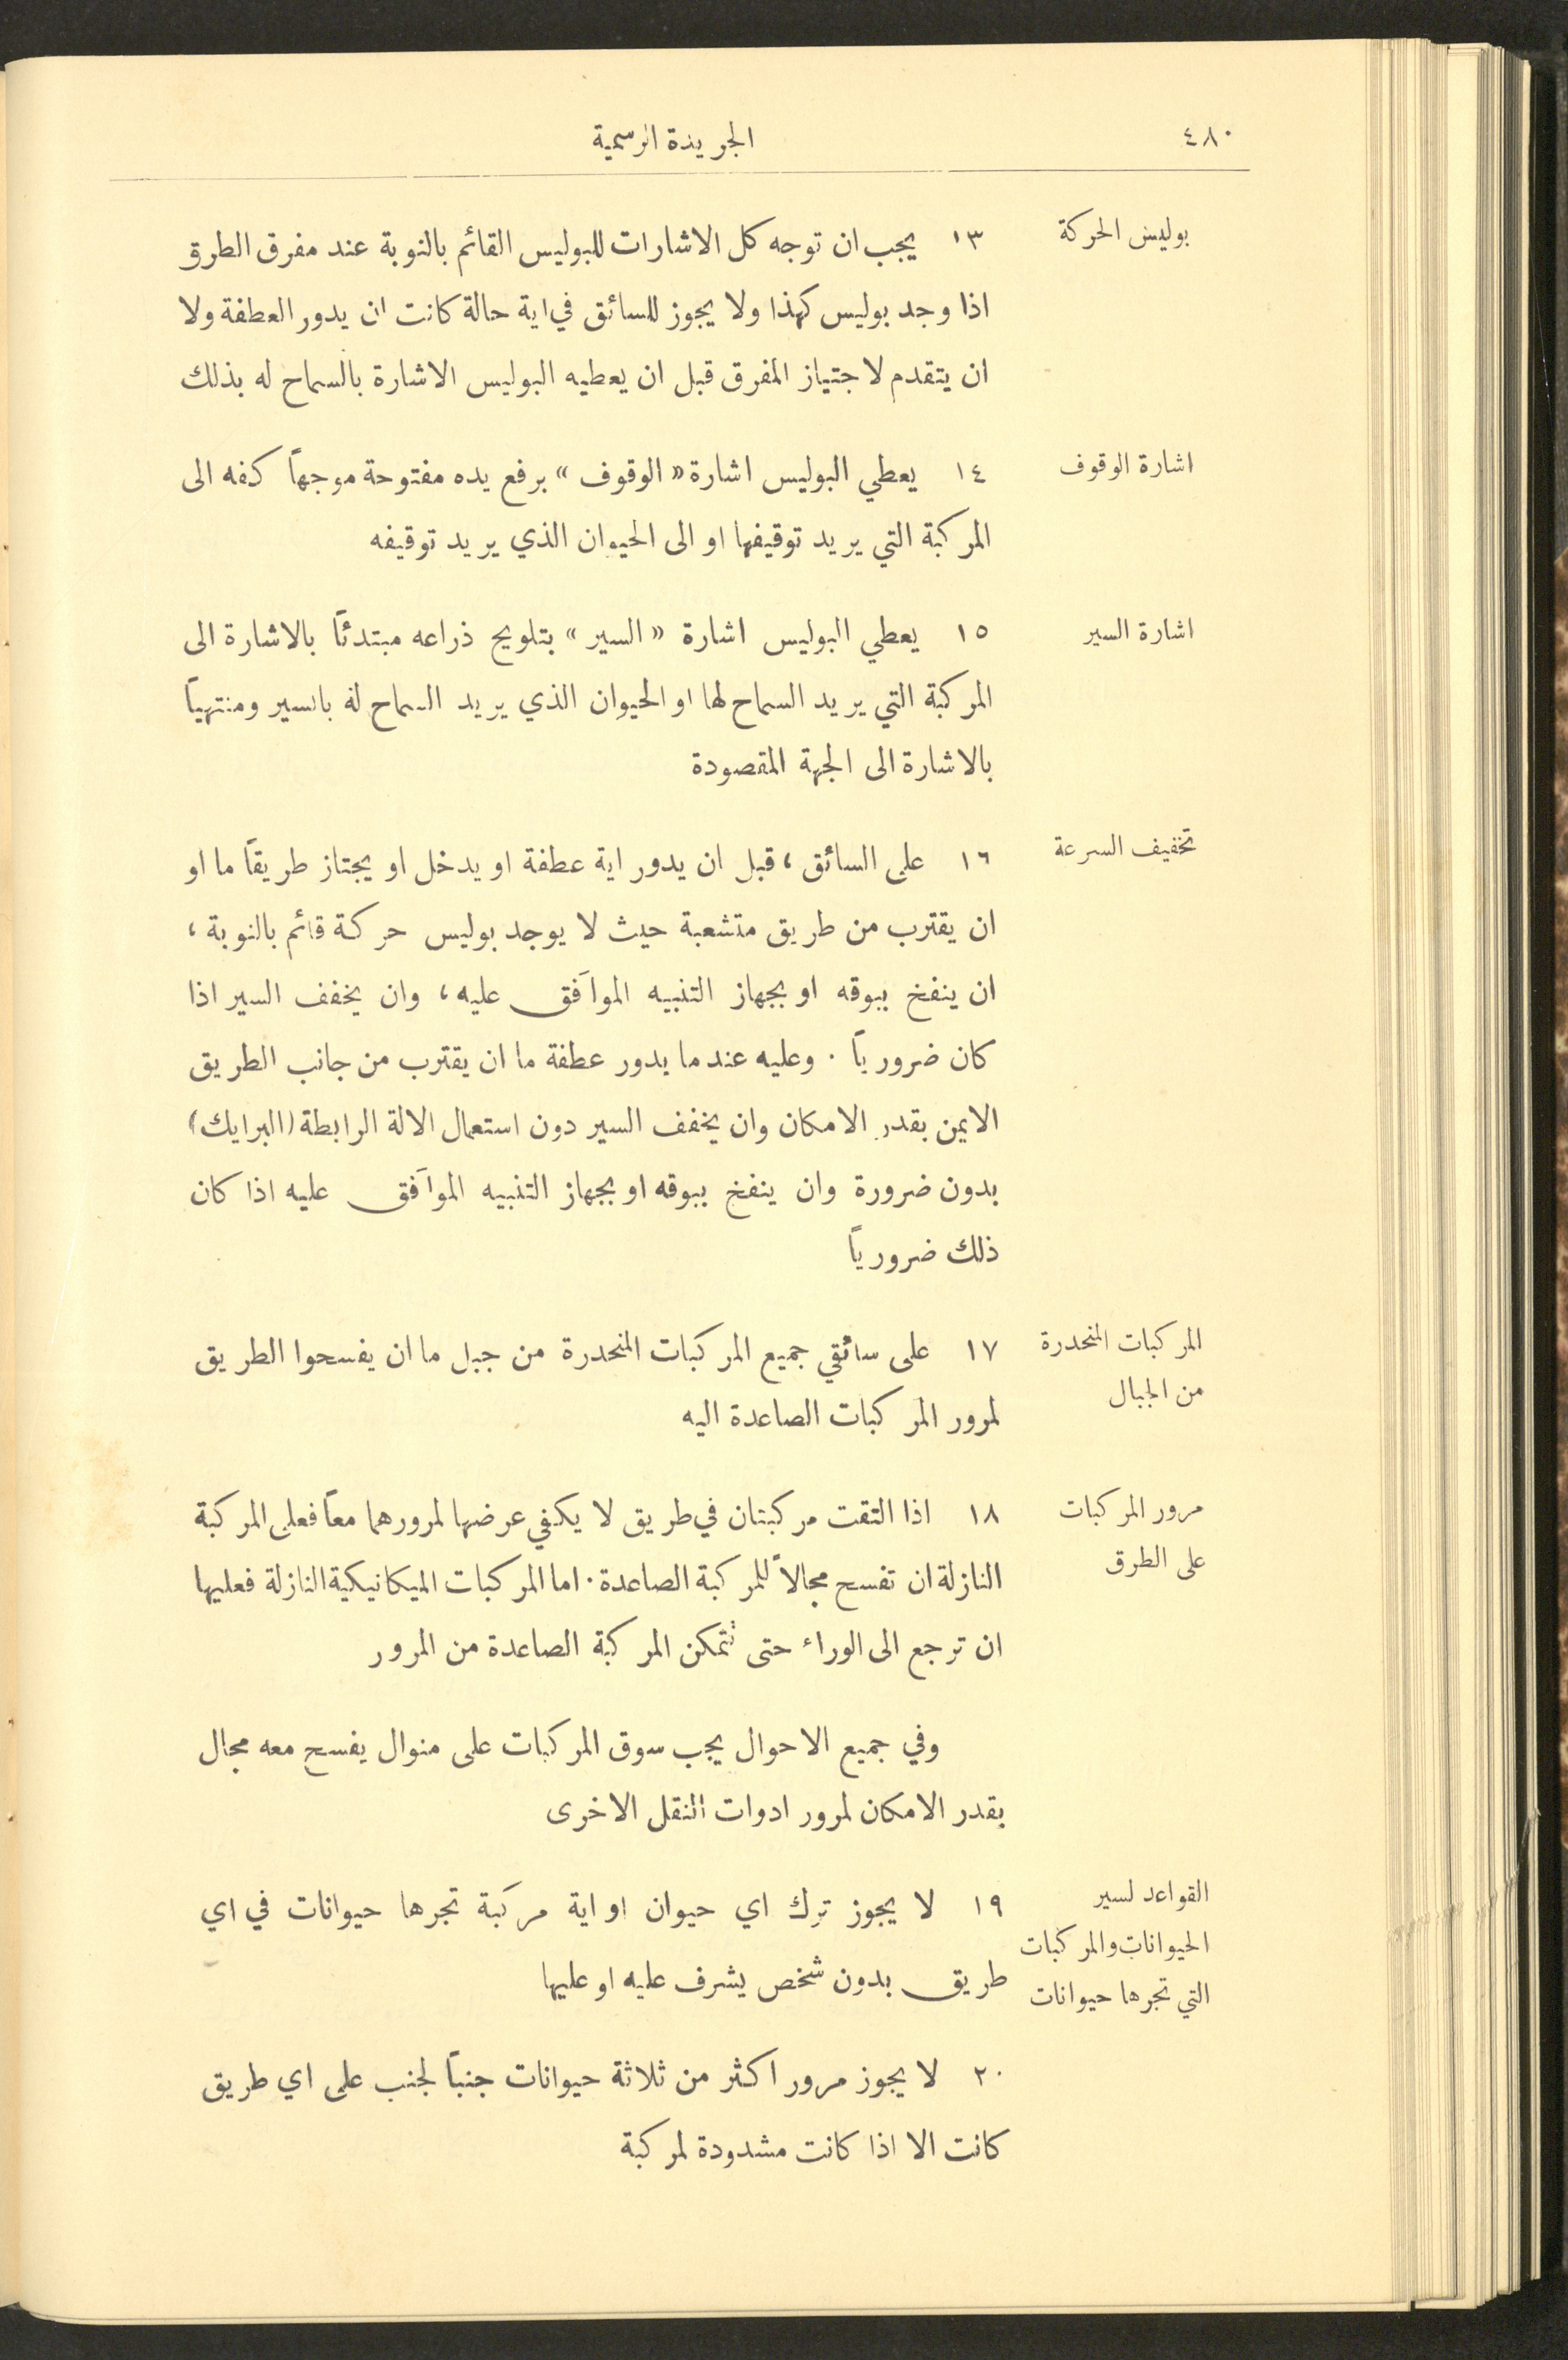 ٤٨٠
الجريدة الرسمية
بوليس الحركة
١٣ يجب ان توجه كل الاشارات للبوليس القائم بالنوبة عند مفرق الطرق
اذا وجد بوليس كهذا ولا يجوز للسائق في اية حالة كانت ان يدور العطفة ولا
ان يتقدم لاجتياز المفرق قبل ان يعطيه البوليس الاشارة بالسماح له بذلك
اشارة الوقوف
١٤ يعطي البوليس اشارة « الوقوف » برفع يده مفتوحة موجهاً كفه الى
المركبة التي يريد توقيفها او الى الحيوان الذي يريد توقيفه
اشارة السير
١٥ يعطي البوليس اشارة « السير » بتلويح ذراعه مبتدئاً بالاشارة الى
المركبة التي يريد السماح لها او الحيوان الذي يريد السماح له بالسير ومنتهياً
بالاشارة الى الجهة المقصودة
تخفيف السرعة
١٦ على السائق، قبل ان يدور اية عطفة او يدخل او يجتاز طريقاً ما او
ان يقترب من طريق متشعبة حيث لا يوجد بوليس حركة قائم بالنوبة،
ان ينفخ ببوقه او بجهاز التنبيه الموآفق عليه، وان يخفف السير اذا
كان ضرورياً . وعليه عند ما يدور عطفة ما ان يقترب من جانب الطريق
الايمن بقدر الامكان وان يخفف السير دون استعمال الالة الرابطة (البرايك)
بدون ضرورة وان ينفخ ببوقه او بجهاز التنبيه الموآفق عليه اذا كان
ذلك ضرورياً
المركبات المنحدرة
من الجبال
١٧ على سائقي جميع المركبات المنحدرة من جبل ما ان يفسحوا الطريق
لمرور المركبات الصاعدة اليه
مرور المركبات
على الطرق
١٨ اذا التقت مركبتان في طريق لا يكفي عرضها لمرورهما معاً فعلى المركبة
النازلة ان تفسح مجالاً للمركبة الصاعدة . اما المركبات الميكانيكية النازلة فعليها
ان ترجع الى الوراء حتى تتمكن المركبة الصاعدة من المرور
وفي جميع الاحوال يجب سوق المركبات على منوال يفسح معه مجال
بقدر الامكان لمرور ادوات النقل الاخرى
القواعد لسير
الحيوانات والمركبات
التي تجرها حيوانات
١٩ لا يجوز ترك اي حيوان او اية مركبة تجرها حيوانات في اي
طريق بدون شخص يشرف عليه او عليها
٢٠ لا يجوز مرور اكثر من ثلاثة حيوانات جنباً لجنب على اي طريق
كانت الا اذا كانت مشدودة لمركبة